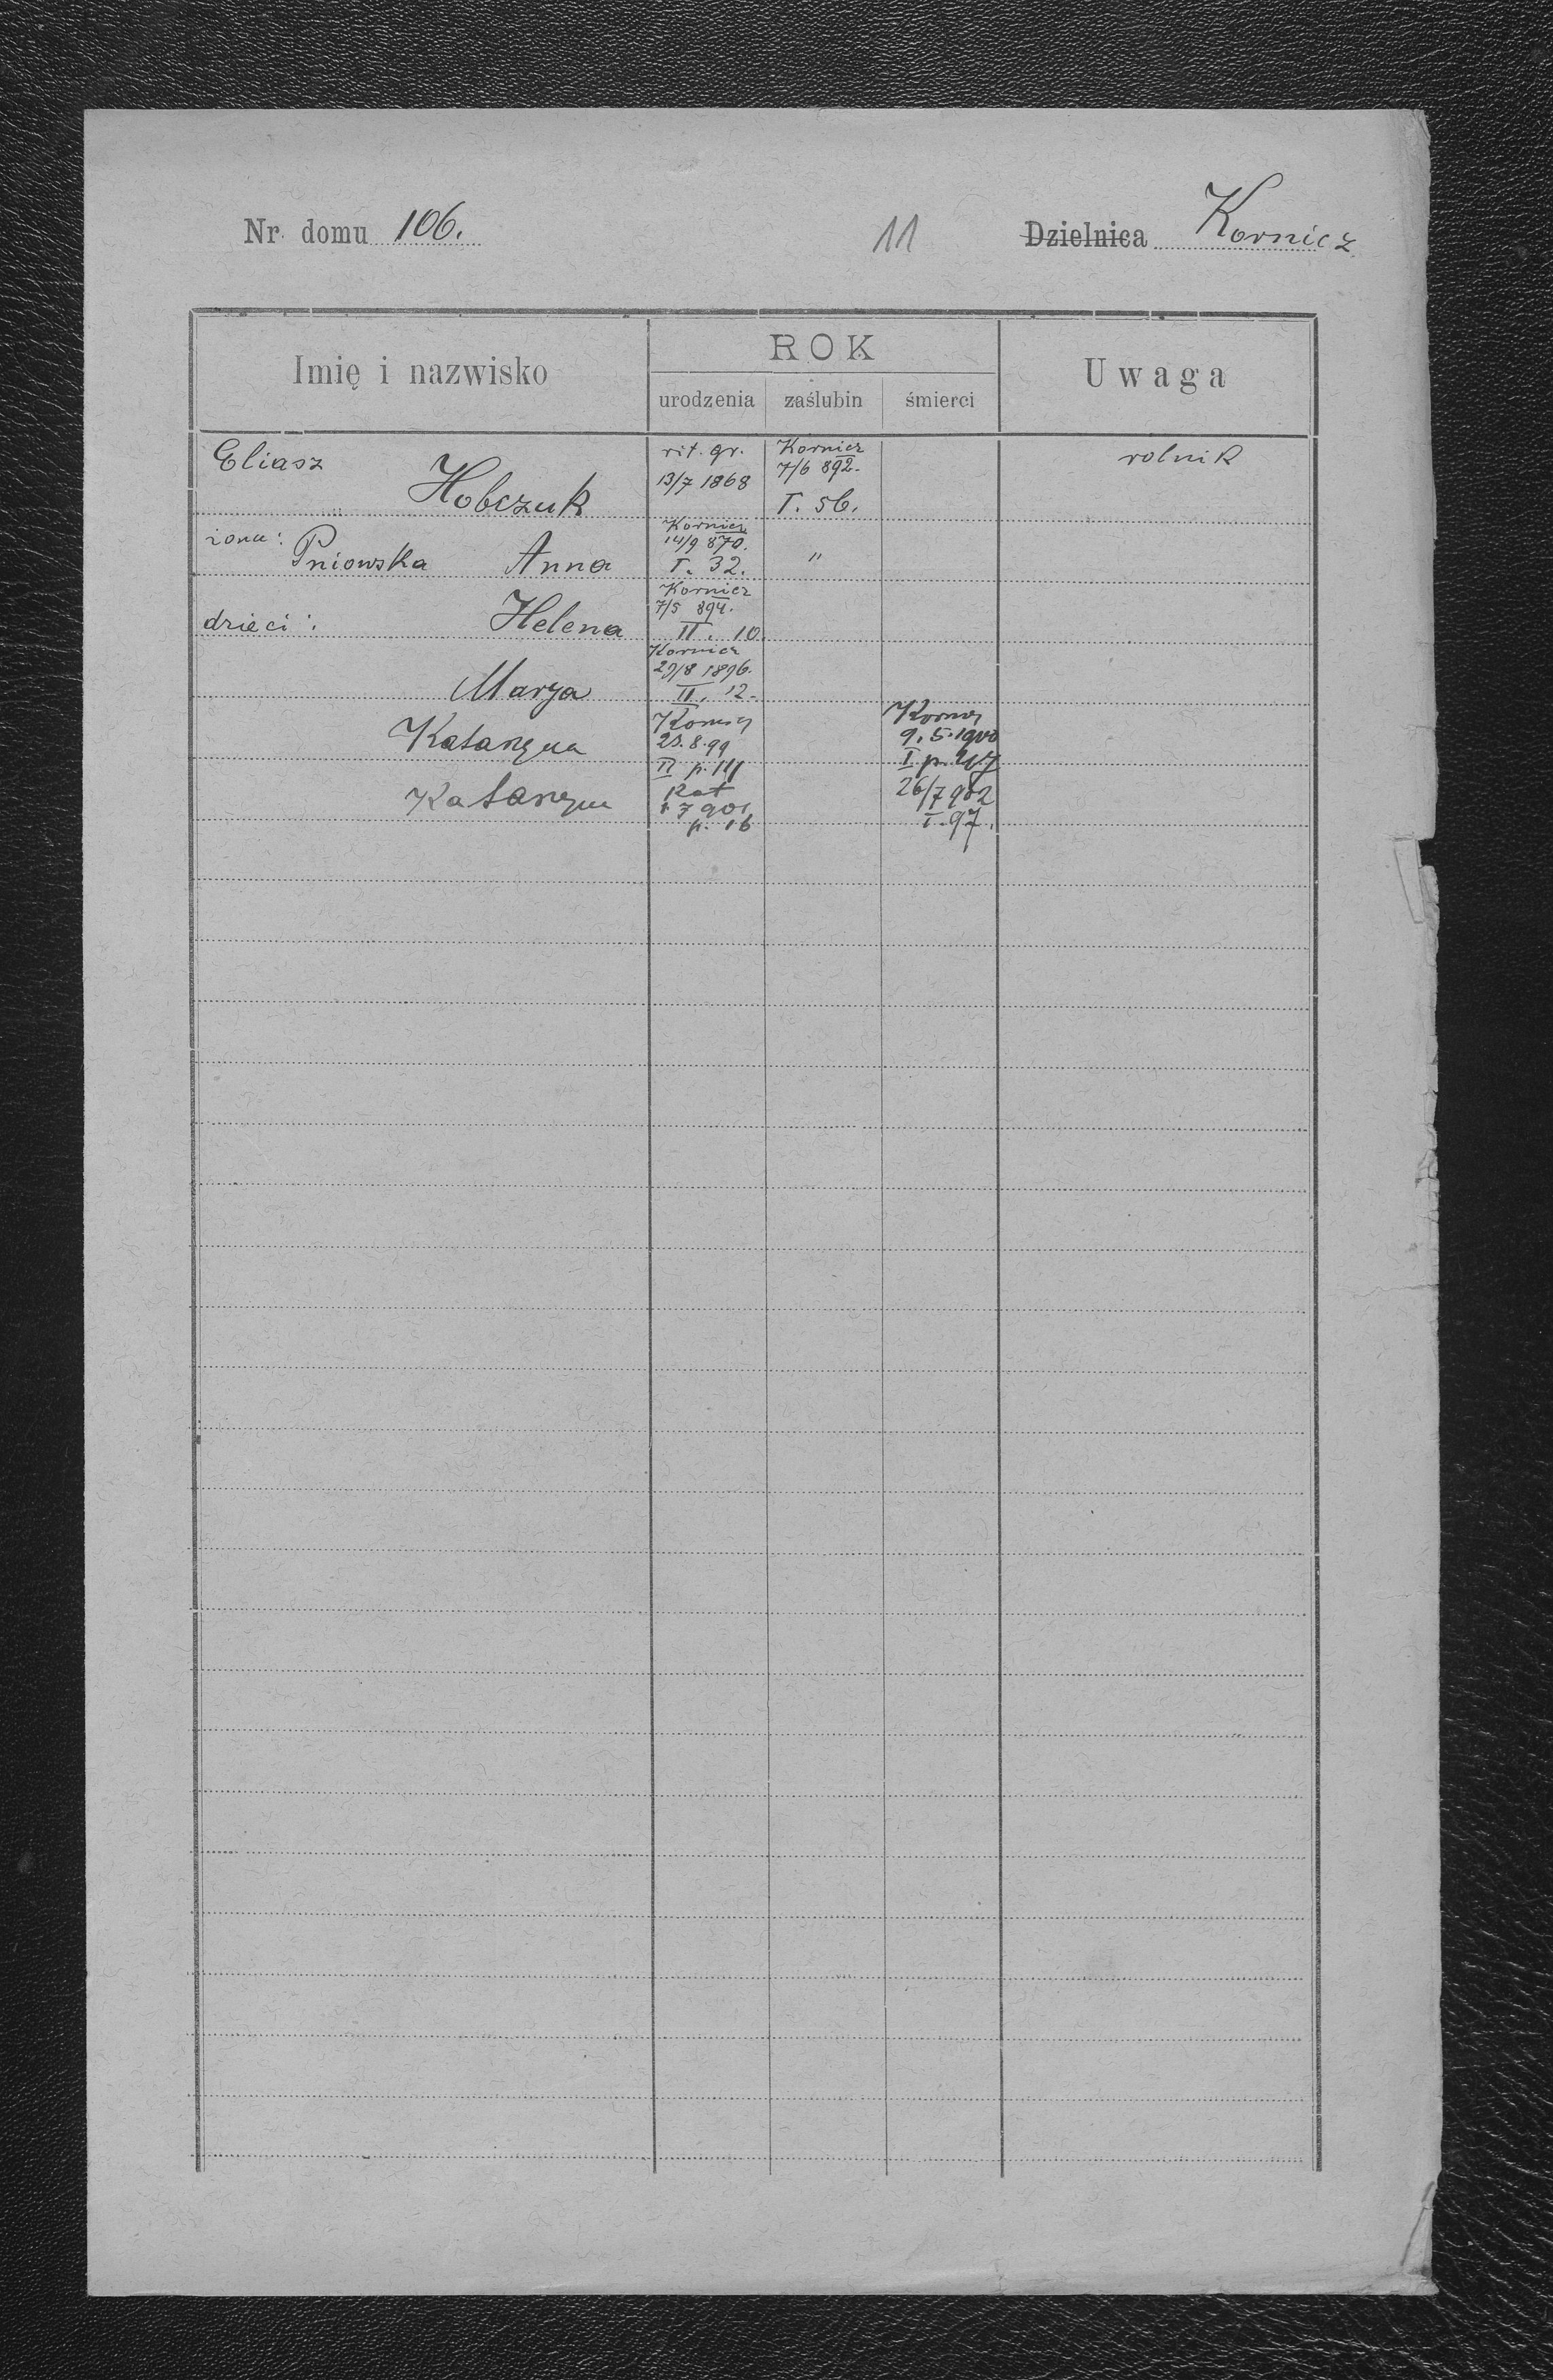 Nr. domu 106.
11
Dzielnica Kornicz
Imię i nazwisko
ROK
urodzenia
zaślubin
śmierci
Uwaga
Eliasz Hobczuk
rit. gr.
13/7 1868
Kornicz
7/6 892.
T. 56.
rolnik
żona: Pniowska Anna
Kornicz
14/9 870.
T. 32.
"
dzieci: Helena
Kornicz
7/5 894.
II. 10.
Marya
Kornicz
29/8 1896.
II. 12.
Katarzyna
25.8.99
II p.
9.5.1900
I p. 47
Katarzyna
Kat
7 901
p. 16
26/7 902
I. 97.